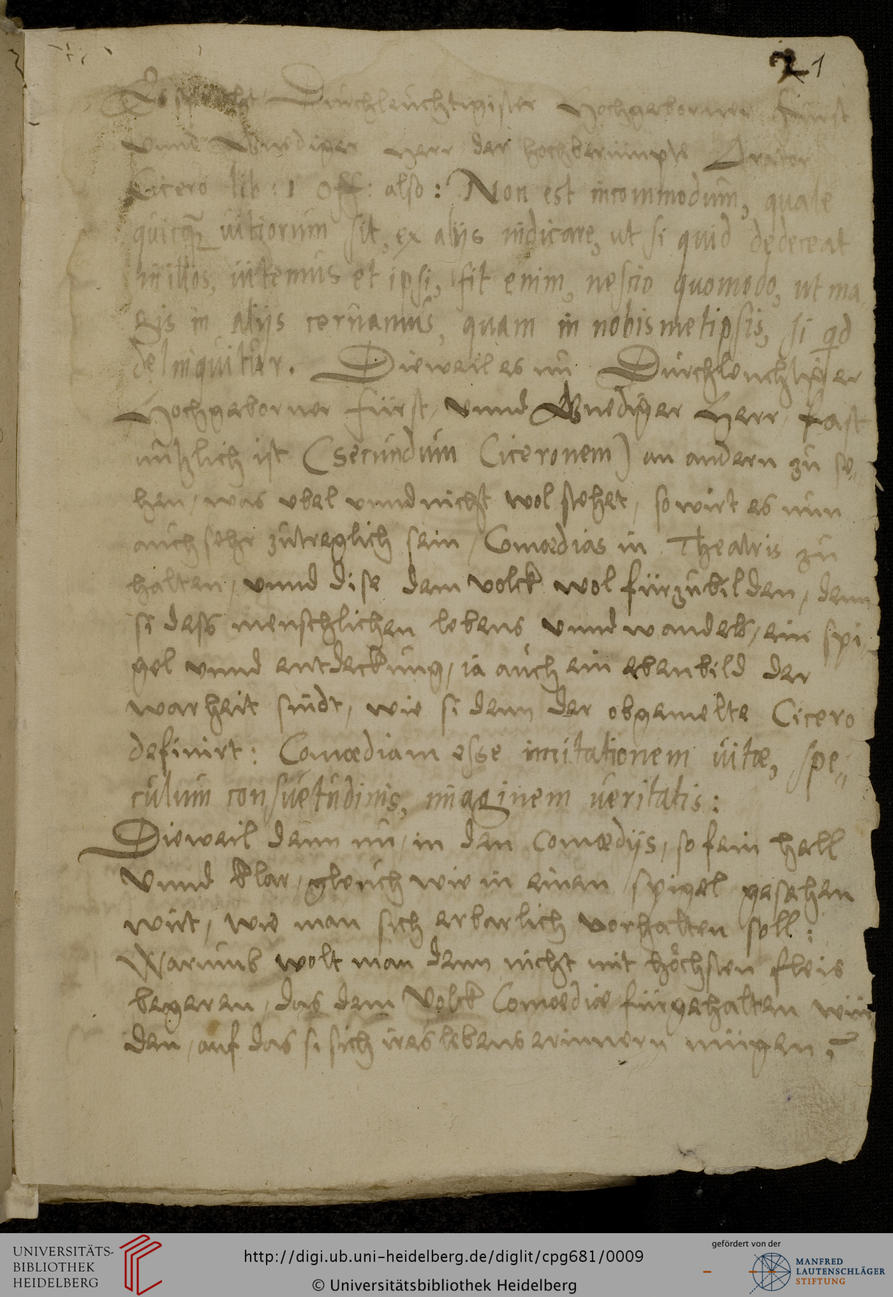 21
Es spricht Durchleuchtigister Hochgeborner Fürst
vnnd Gnediger Herr der hochberümpte Orator
Cicero lib: 1 Off: also: Non est incommodum, quale
quicq; vitiorum sit, ex alijs iudicare, ut si quid dedeceat
in illos, vitemus et ipsi, fit enim, nescio quomodo, ut ma
gis in alijs cernamus, quam in nobismetipsis, si qd
delinquitur. Dieweil es nu Durchleuchtister
Hochgeborner Fürst, vnnd Gnediger Herr, fast
nutzlich ist (secundum Ciceronem) an andern zu se,
hen, was vbel vnnd nicht wol stehet, so wirt es nun
auch sehr zutreglich sein, Comœdias in Theatris zu
halten, vnnd dise dem volck wol fürzubilden, denn
si dess menschlichen lebens vnnd wandels, ein spi
gel vnnd entdeckung, ia auch ein ebenbild der
warheit sindt, wie si denn der obgemelte Cicero
definirt: Comœdiam esse imitationem vitæ, spe„
culum consuetudinis, imaginem veritatis:
Dieweil dann nu, in den Comœdijs, so fein hell
vnnd klar, gleich wie in einen spigel gesehen
wirt, wie man sich erbarlich vorhalten soll:
Warumb wolt man denn nicht mit höchsten fleis
begeren, das dem Volck Comœdiæ fürgehalten wür
den, auf das si sich ires lebens erinnern mügen,
UNIVERSITÄTS-
BIBLIOTHEK
HEIDELBERG
http://digi.ub.uni-heidelberg.de/diglit/cpg681/0009
© Universitätsbibliothek Heidelberg
gefördert von der
MANFRED
LAUTENSCHLÄGER
STIFTUNG